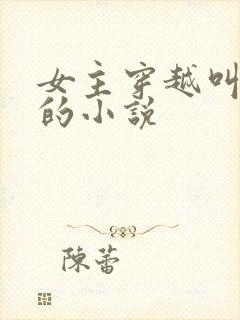 女主穿越叫
的小說
陳蕾